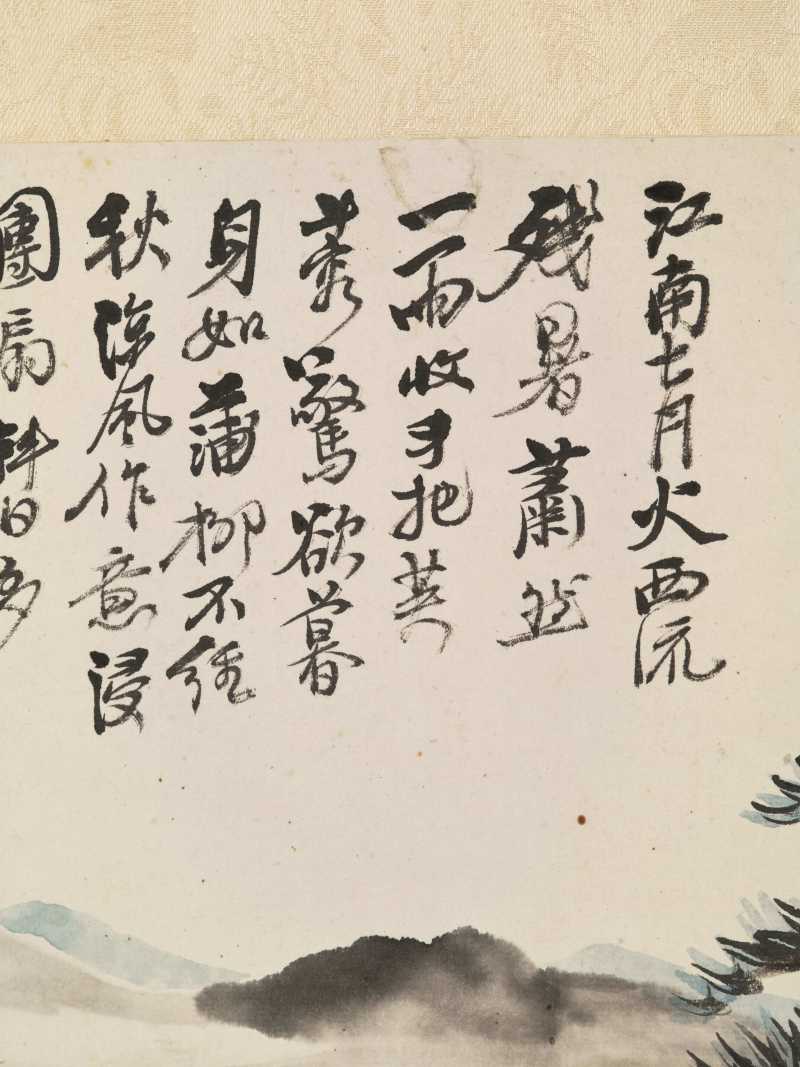 江南七月火西流
殘暑蕭然
一雨收手把芙
蓉驚欲暮
身如蒲柳不經
秋涼風作意浸
團扇斜日多